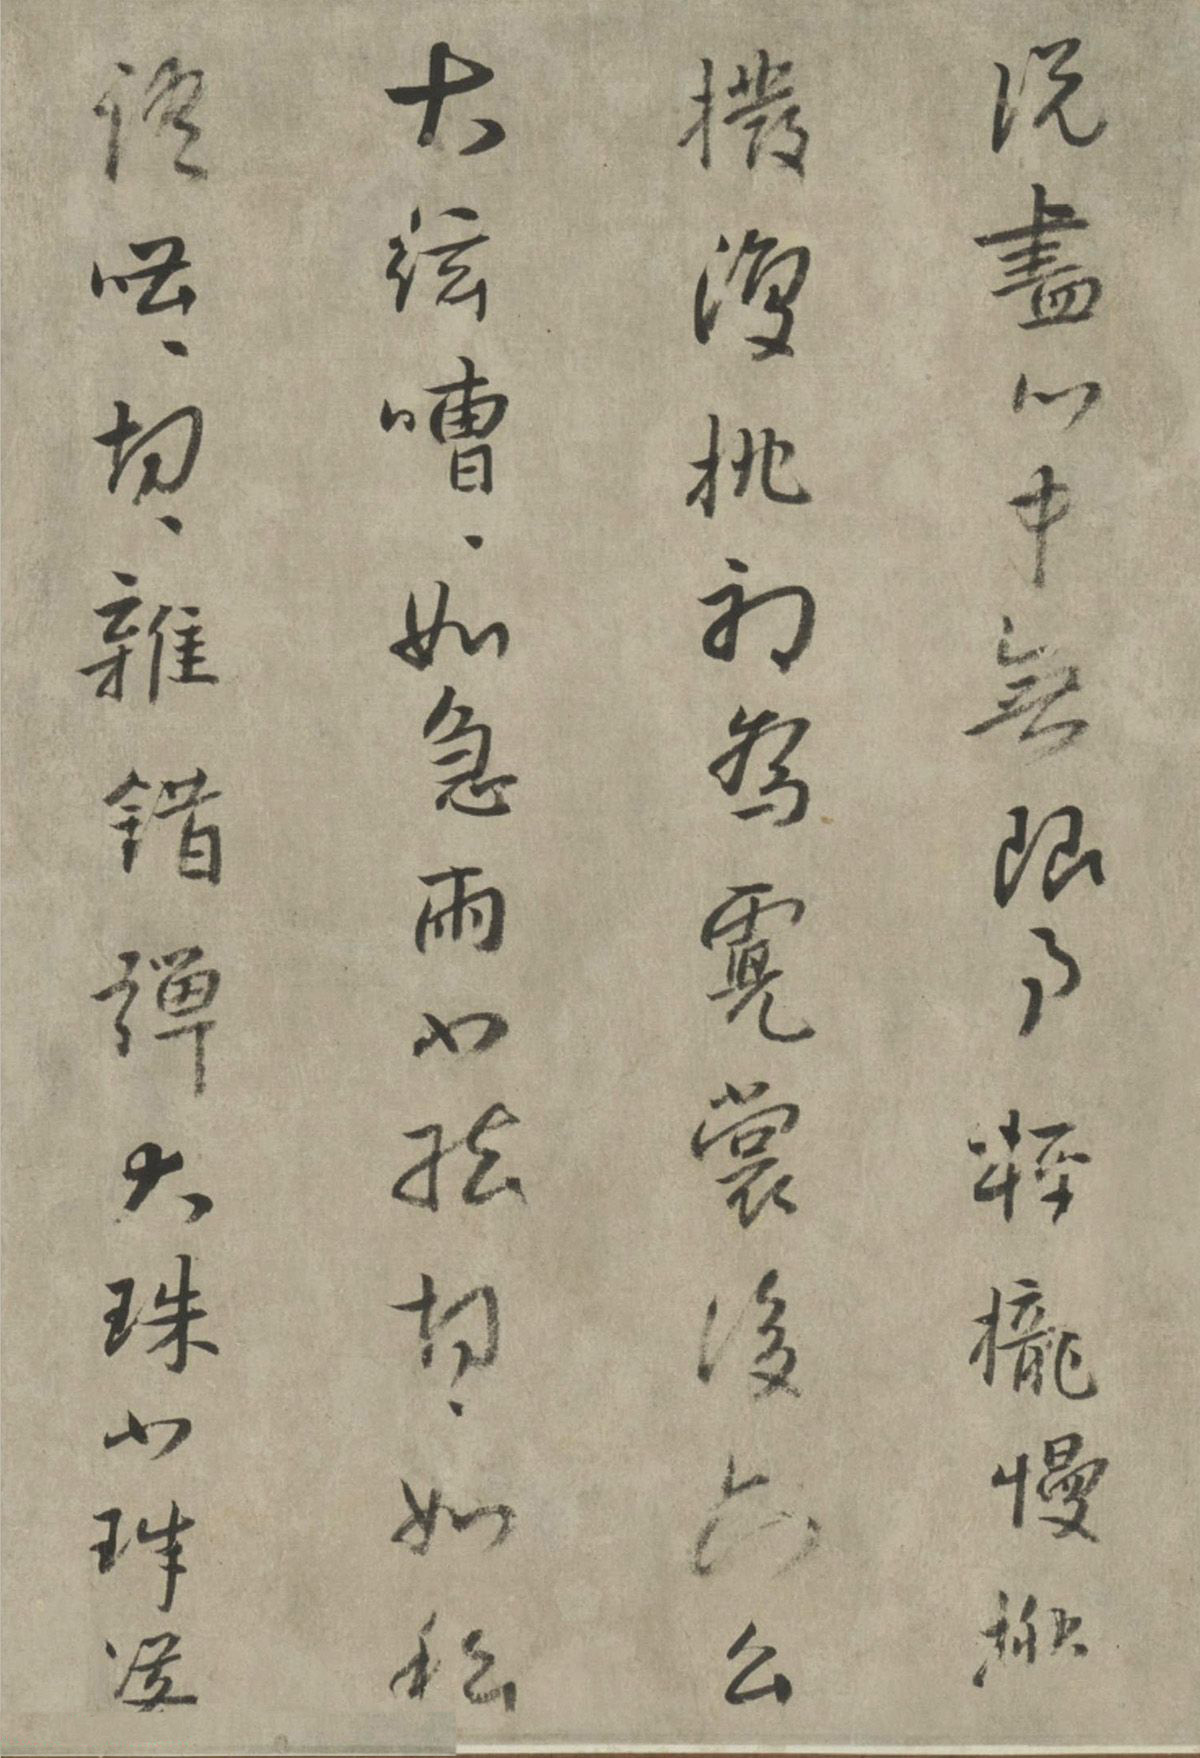 說盡心中無限事輕攏慢撚
撥復挑初為霓裳後六么
大絃嘈〻如急雨小弦切〻如私
語嘈〻切〻雜錯彈大珠小珠落